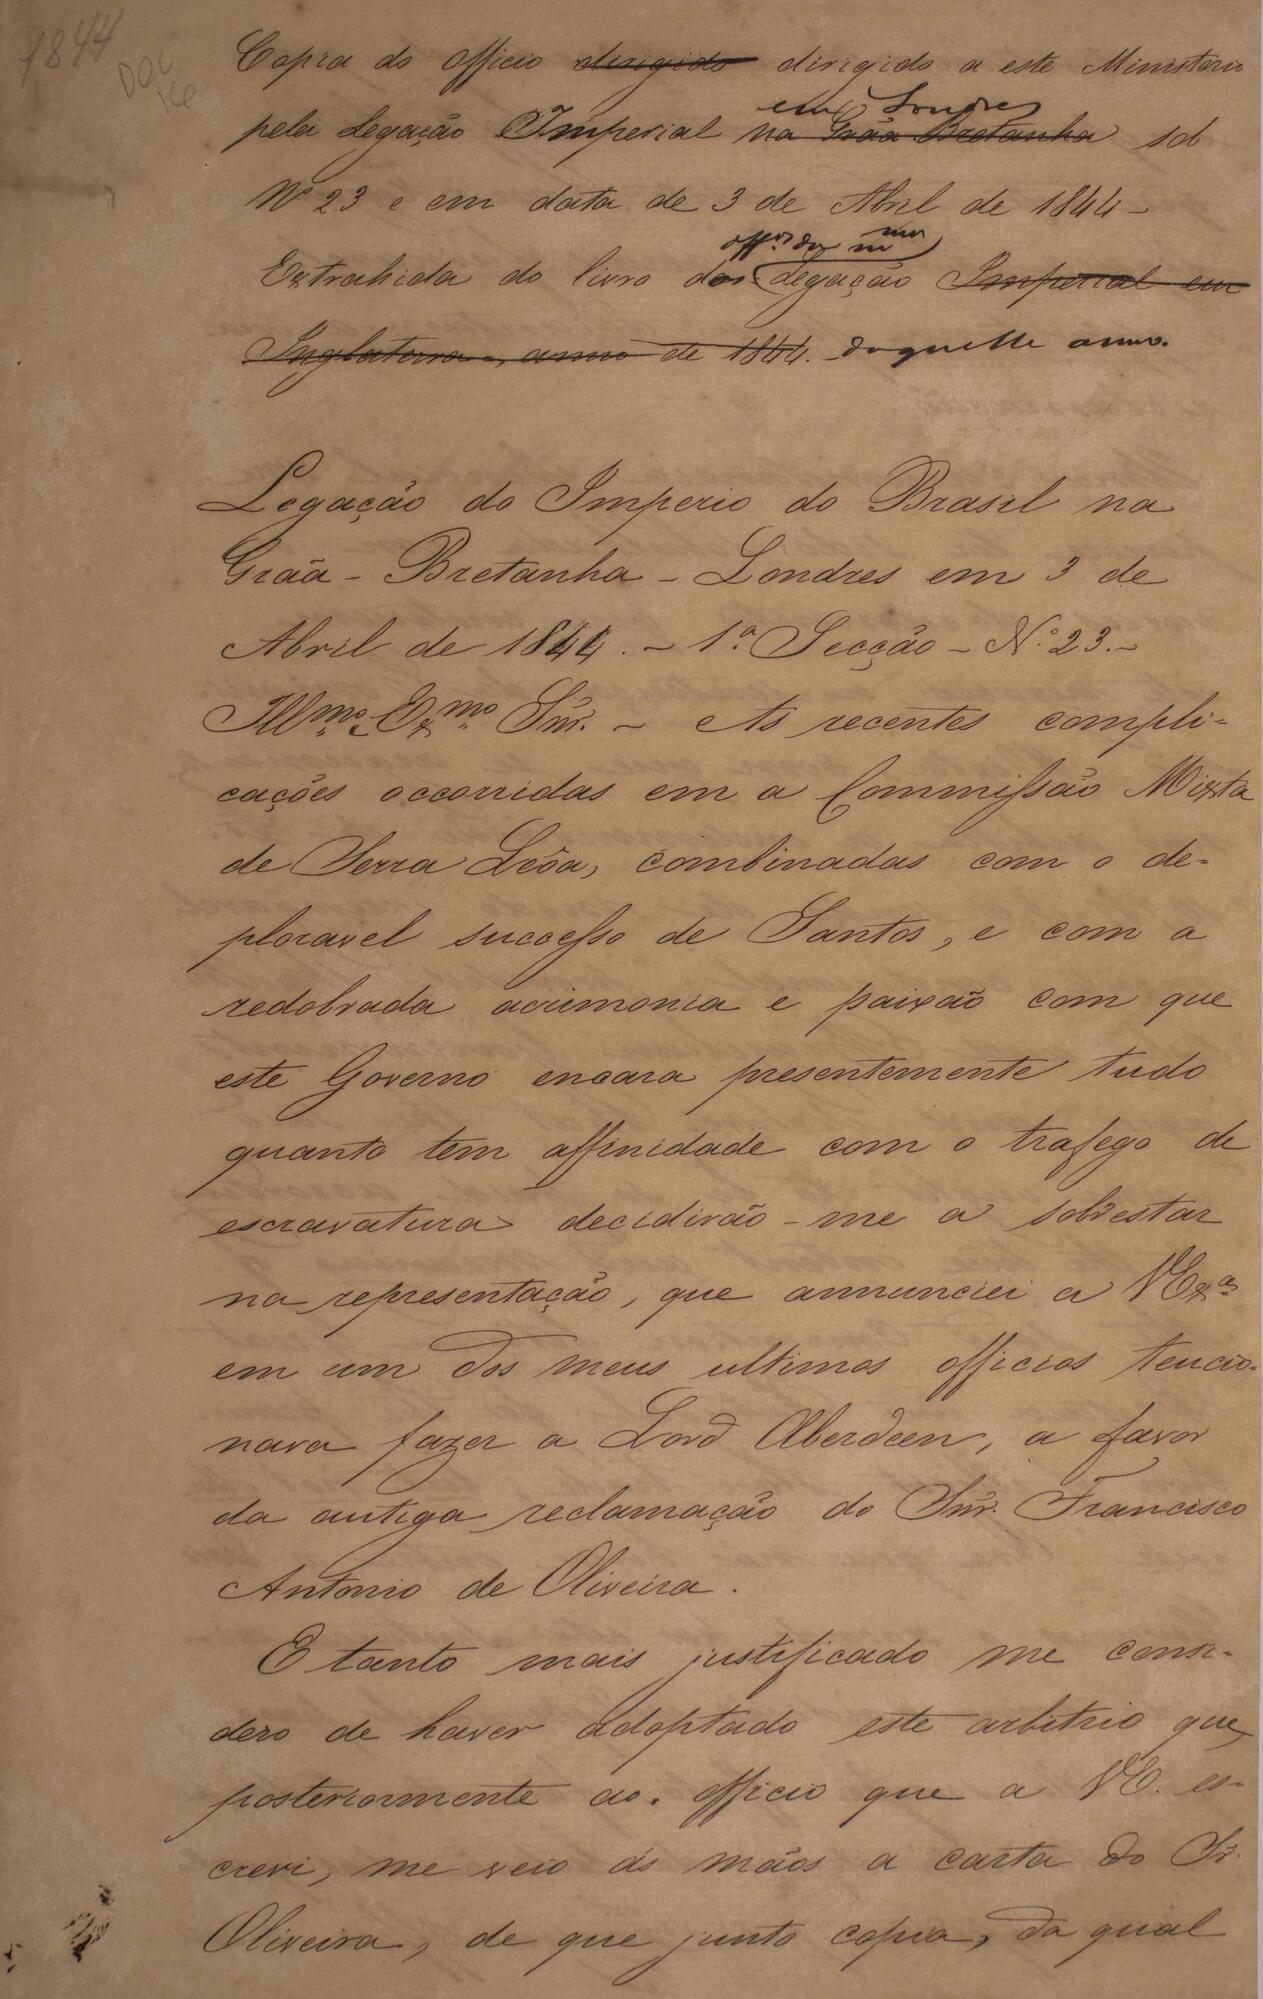 1844
DOC
Copia do officio dirigido dirigido a este Ministerio
em Londres
pela Legação Imperial na Grãa Bretanha sob
Nº 23 e em data de 3 de Abril de 1844 –
Extrahida do livro dos Legação Imperial em
Inglaterra, anno de 1844. daquelle anno.
Legação do Imperio do Brasil na
Grãa – Bretanha – Londres em 3 de
Abril de 1844. – 1ª Secção – Nº 23. –
Illmo. Exmo. Snr. – As recentes compli=
cações occorridas em a Commissão Mixta
de Serra Lêoa, combinadas com o de=
ploravel successo de Santos, e com a
redobrada acrimonia e paixão com que
este Governo encara presentemente tudo
quanto tem affinidade com o trafego de
escravatura decidirão-me a sobrestar
na representação, que annunciei a VExª
em um dos meus ultimos officios tencio=
nava fazer a Lord Aberdeen, a favor
da antiga reclamação do Snr. Francisco
Antonio de Oliveira.
E tanto mais justificado me consi=
dero de haver adoptado este arbitrio que,
posteriormente ao officio que a VE. es=
crevi, me veio ás mãos a carta do Sr.
Oliveira, de que junto copia, da qual